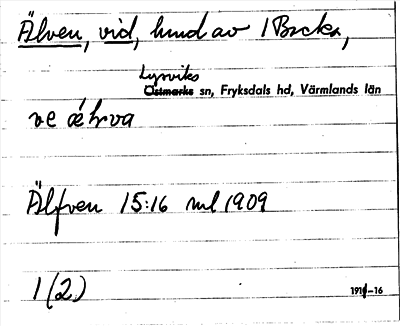 Älven, vid, hmd av 1 Backa,
Lysviks
Östmarks sn, Fryksdals hd, Värmlands län
ve æ̀lva
Älfven 15:16 ml 1909
1 (2)
1911-16